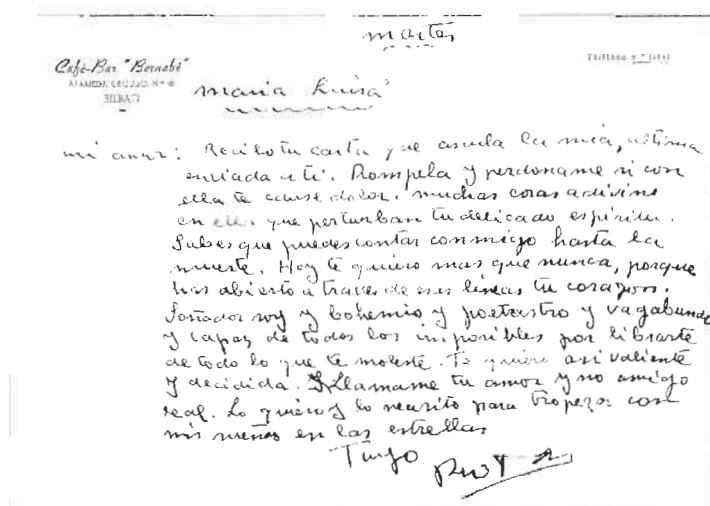 martes
Café-Bar "Bernabé"
BILBAO
maria Luisa
mi amor: Recibo tu carta que anula la mia, ultima
enviada a ti. Rompela y perdoname si con
ella te cause dolor. muchas cosas adivino
en ella que perturban tu delicado espiritu.
Sabes que puedes contar conmigo hasta la
muerte. Hoy te quiero mas que nunca, porque
has abierto a traves de esas lineas tu corazon.
Soñador soy y bohemio y poetastro y vagabundo
y capaz de todos los imposibles por librarte
de todo lo que te moleste. Te quiero asi valiente
y decidida. Llamame tu amor y no amigo
real. Lo quiero y lo necesito para tropezar con
mis sueños en las estrellas
Tuyo